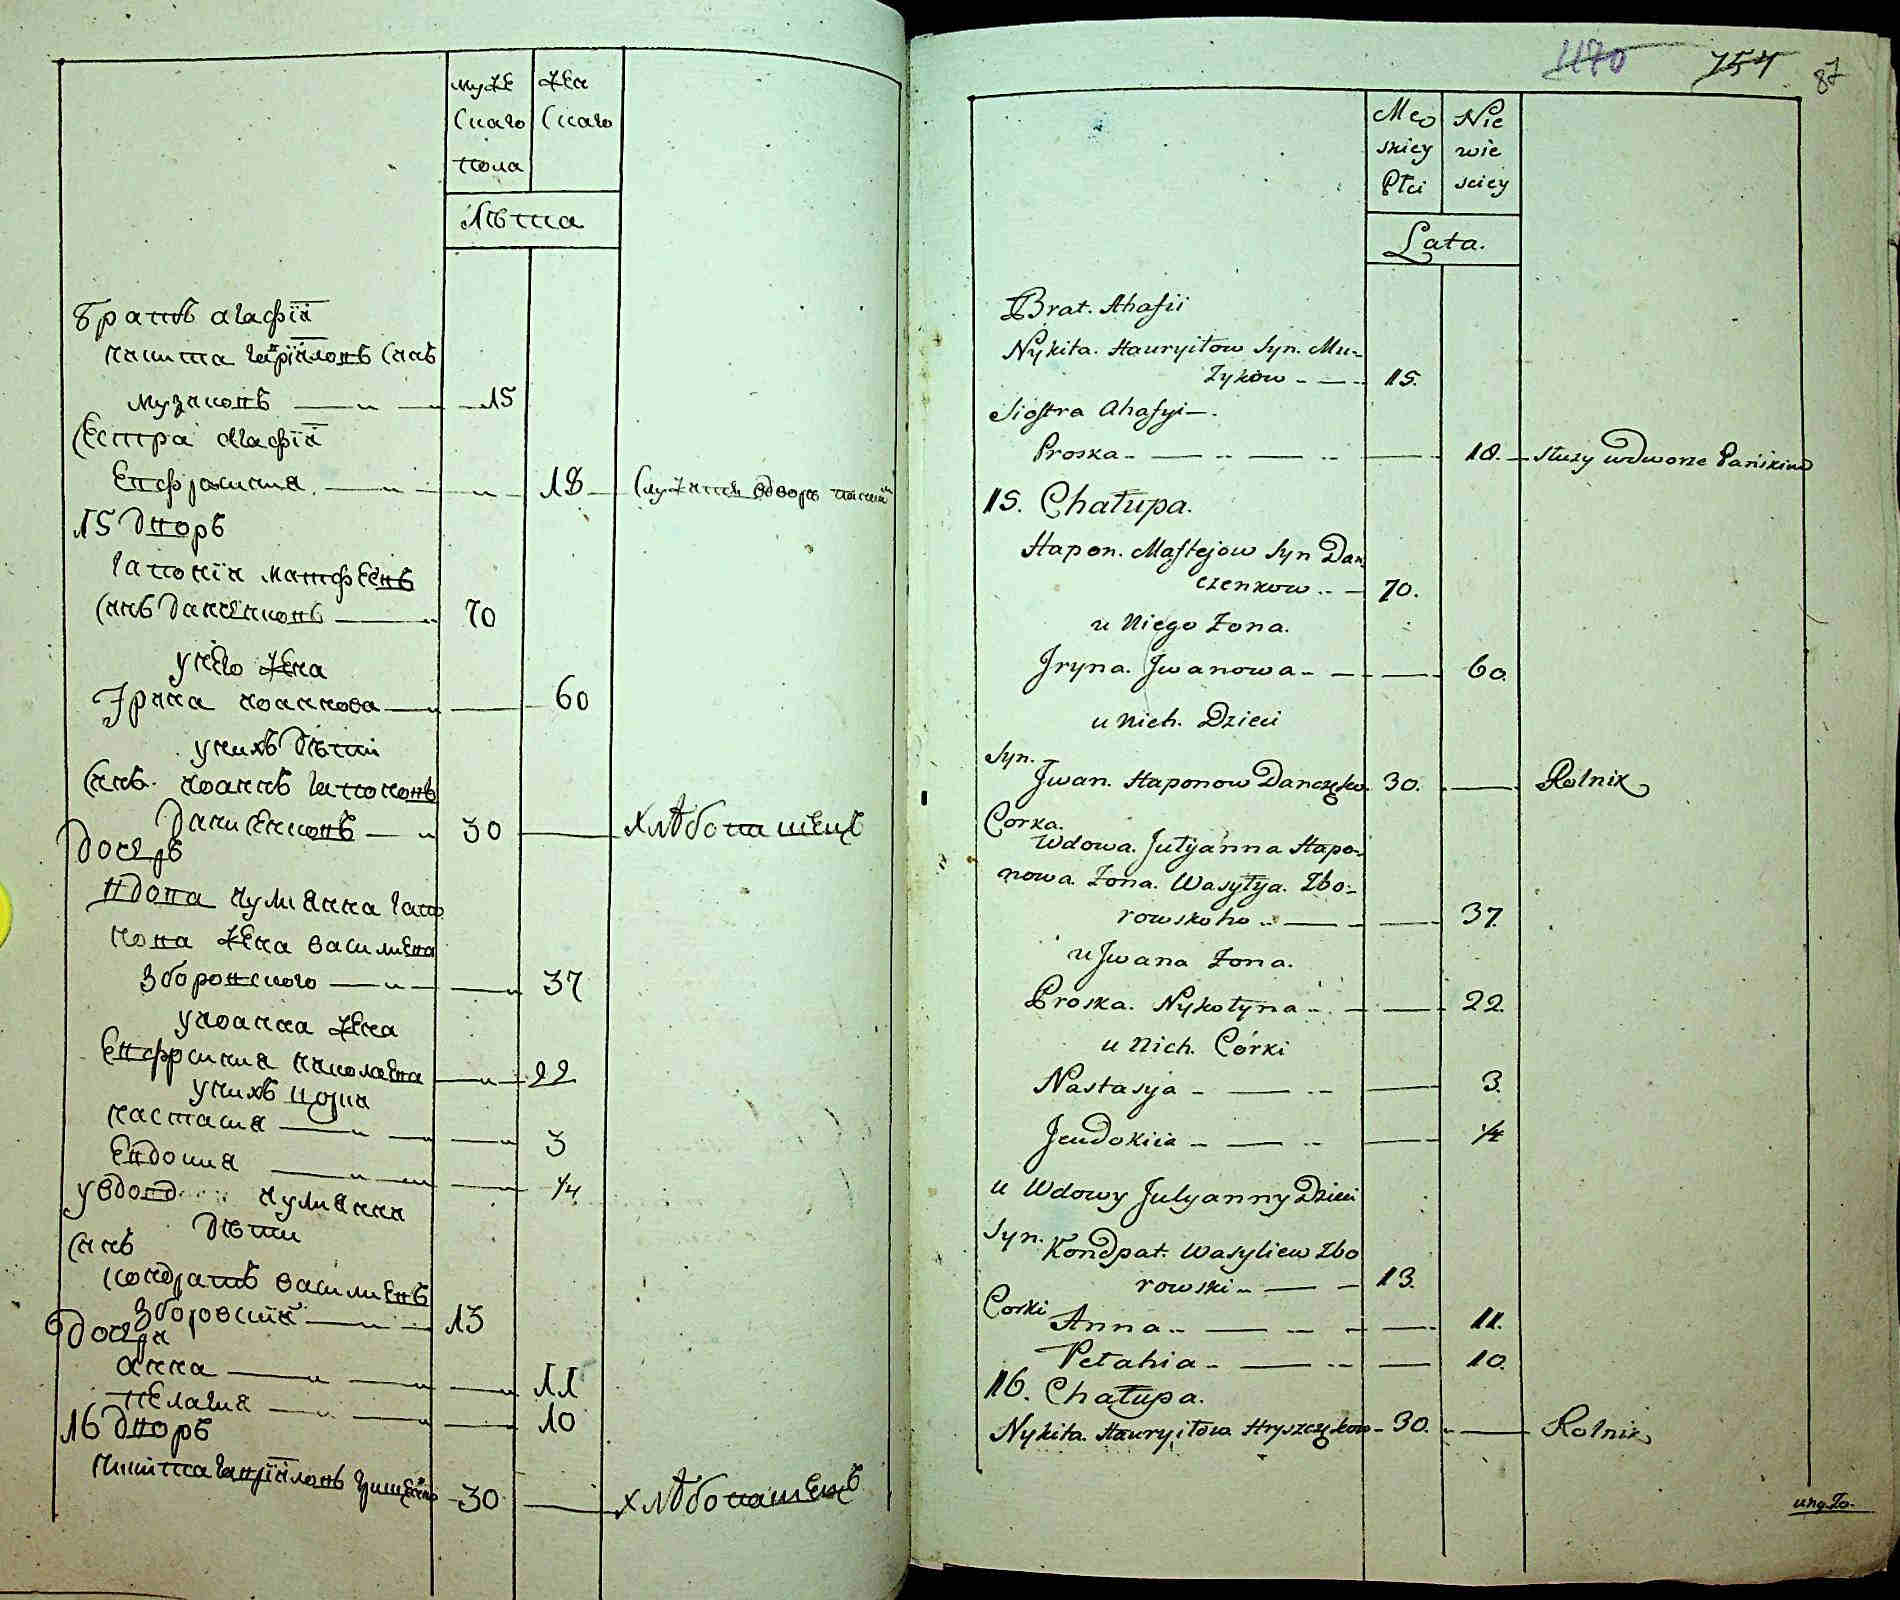 муже
скаго
пола
жен
скаго
лѣта
братъ агафіи
никита гавріиловъ синъ
музиковъ 15
сестра агафіи
евфросиния 18 служитъ вдворѣ
15 дворъ
гапонъ матфеевъ
синъ данченковъ 70
у него жена
Ирина иоаннова 60
у нихъ дѣти
синъ иоаннъ гапоновъ
данченковъ 30 хлѣбопашецъ
дочерь
вдова иулианна гапо
нова жена василиева
зборовского 37
у иоанна жена
евфросиния николаева 22
у нихъ дочери
настасия 3
евдокия 1/4
у вдови иулианни
дѣти
синъ
кондратъ василиевъ
зборовский 13
дочери
анна 11
пелагия 10
16 дворъ
никита гавріиловъ 30 хлѣбопашецъ
1170 754 87
Męs
skiey
Płci
Nie
wie
sciey
Lata.
Brat. Ahafii
Nykita. Hauryiłow Syn. Mu-
zykow 15.
Siostra Ahafyi
Proska 18. służy wdworze Pańskim
15. Chałupa.
Hapon. Maftejow Syn Dan
czenkow 70.
u Niego Zona.
Jryna. Jwanowa 60.
u Nich. Dzieci
Syn.
Jwan. Haponow Danczęko. 30. Rolnik
Corka.
Wdowa. Julyanna Hapo-
nowa. Zona. Wasylya. Zbo-
rowskoho 37.
u Jwana Zona.
Proska. Nykołyna 22.
u Nich. Córki
Nastasya 3.
Jeudokiia 1/4
u Wdowy Julyanny Dzieci
Syn.
Kondpat. Wasyliew Zbo
rowski 13.
Corki
Anna 11.
Pełahia 10.
16. Chałupa.
Nykita. Hauryiłowa Hryszczękow 30. Rolnik